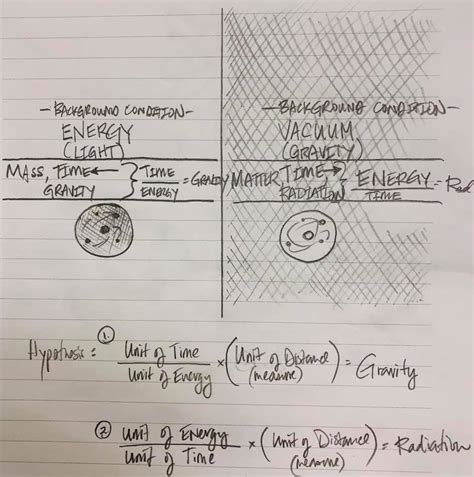 - BACKGROUND CONDITION -
ENERGY
(LIGHT)
MASS, TIME ←
GRAVITY
} TIME
ENERGY
= GRAVITY
- BACKGROUND CONDITION -
VACUUM
(GRAVITY)
MATTER TIME →
RADIATION
} ENERGY
TIME
= Rad
Hypothesis: ① Unit of Time
Unit of Energy
× (Unit of Distance
(measure)) = Gravity
② Unit of Energy
Unit of Time
× (Unit of Distance
(measure)) = Radiation